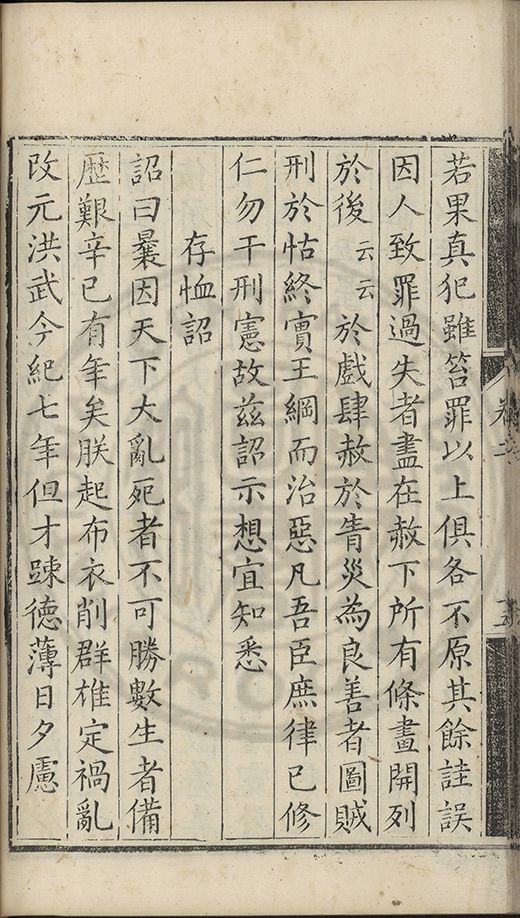 若果真犯雖笞罪以上俱各不原其餘詿誤
因人致罪過失者盡在赦下所有條畫開列
於後云云於戲肆赦於眚災為良善者圖賊
刑於怙終實王綱而治惡凡吾臣庶律已修
仁勿干刑憲故茲詔示想宜知悉
存恤詔
詔曰曩因天下大亂死者不可勝數生者備
歷艱辛已有年矣朕起布衣削群雄定禍亂
改元洪武今紀七年但才踈德薄日夕慮
卷二